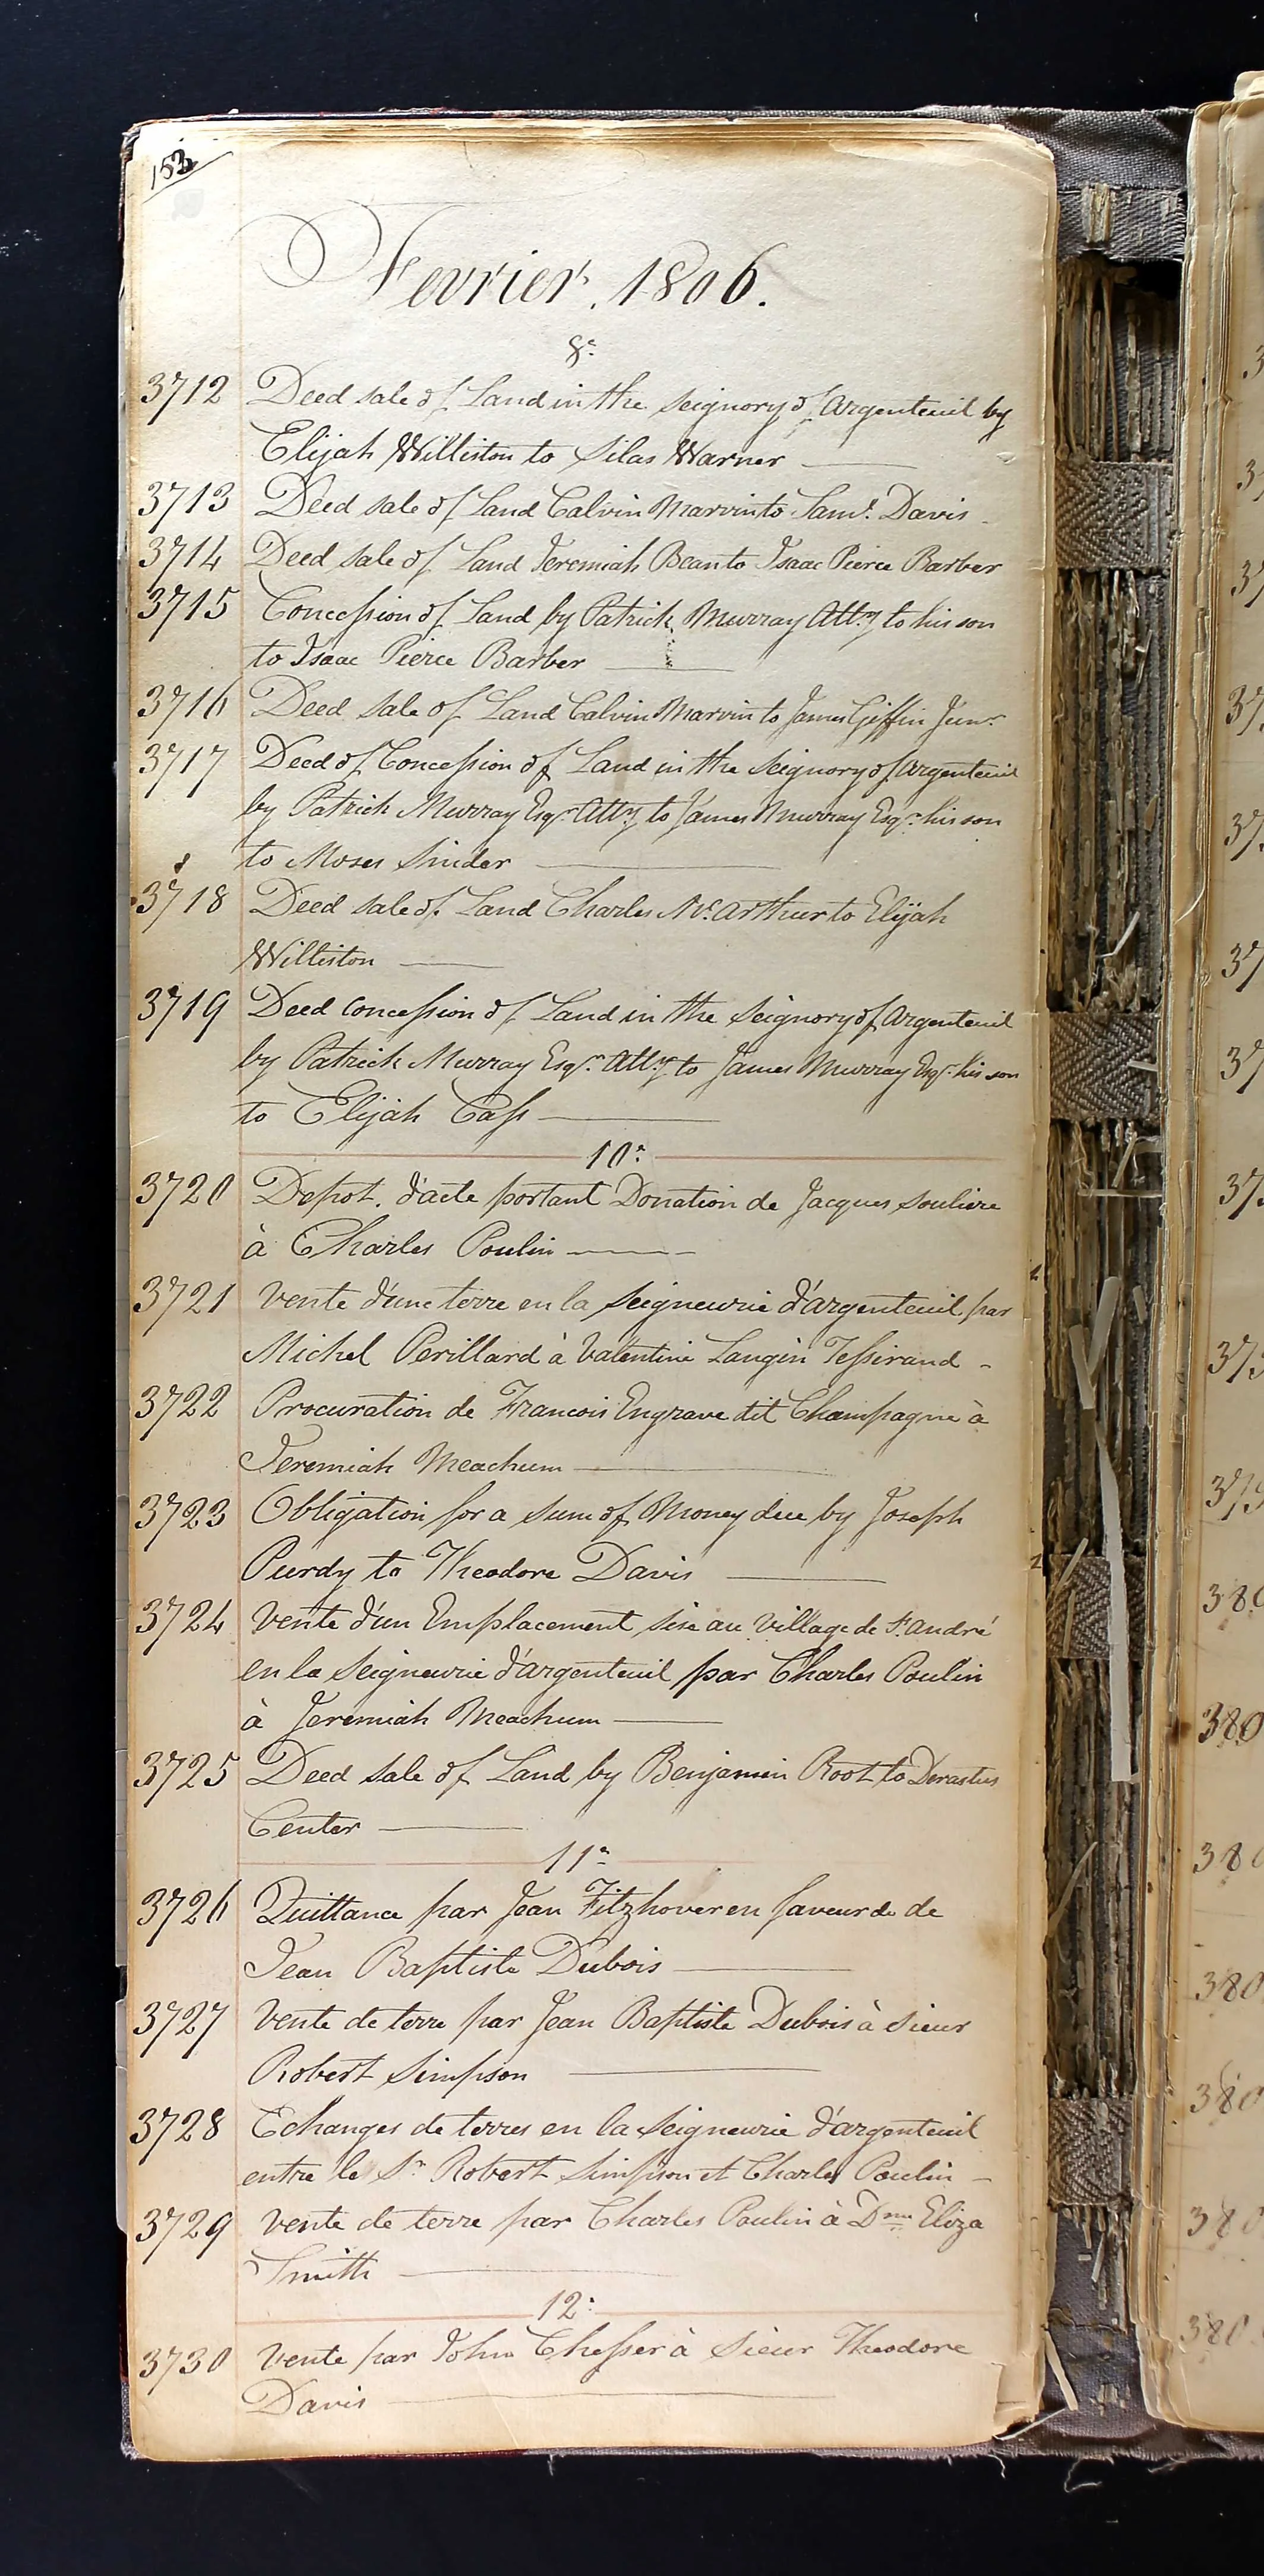 153
Fevrier. 1806.
8e
3712 Deed sale of Land in the Seignory of Argenteuil by
Elijah Williston to Silas Warner
3713 Deed sale of Land Calvin Marvin to Saml. Davis
3714 Deed sale of Land Jeremiah Bean to Isaac Pierce Barber
3715 Concession of Land by Patrick Murray Atty to his son
to Isaac Pierce Barber
3716 Deed sale of Land Calvin Marvin to James Giffin Junr
3717 Deed of Concession of Land in the Seignory of Argenteuil
by Patrick Murray Esqr Atty to James Murray Esqr his son
to Moses Sinder
3718 Deed sale of Land Charles Mc Arthur to Elijah
Williston
3719 Deed concession of Land in the Seignory of Argenteuil
by Patrick Murray Esqr. Atty to James Murray Esqr. his son
to Elijah Cass
10e
3720 Depot. d'acte portant Donation de Jacques Souliere
à Charles Poulin
3721 Vente d'une terre en la Seigneurie d'argenteuil par
Michel Perillard à Valentine Langin Tessirand
3722 Procuration de Francois Engrave dit Champagne à
Jeremiah Meachum
3723 Obligation for a sum of Money due by Joseph
Purdy to Theodore Davis
3724 Vente d'un Emplacement sise au Village de St. andré
en la Seigneurie d'argenteuil par Charles Poulin
à Jeremiah Meachum
3725 Deed sale of Land by Benjamin Root to Derastus
Center
11e
3726 Quittance par Jean Fitzhover en faveur de de
Jean Baptiste Dubois
3727 Vente de terre par Jean Baptiste Dubois à Sieur
Robert Simpson
3728 Echanges de terres en la Seigneurie d'argenteuil
entre le Sr Robert Simpson et Charles Poulin
3729 Vente de terre par Charles Poulin à Dme Eliza
Smith
12e
3730 Vente par John Chesser à Sieur Theodore
Davis